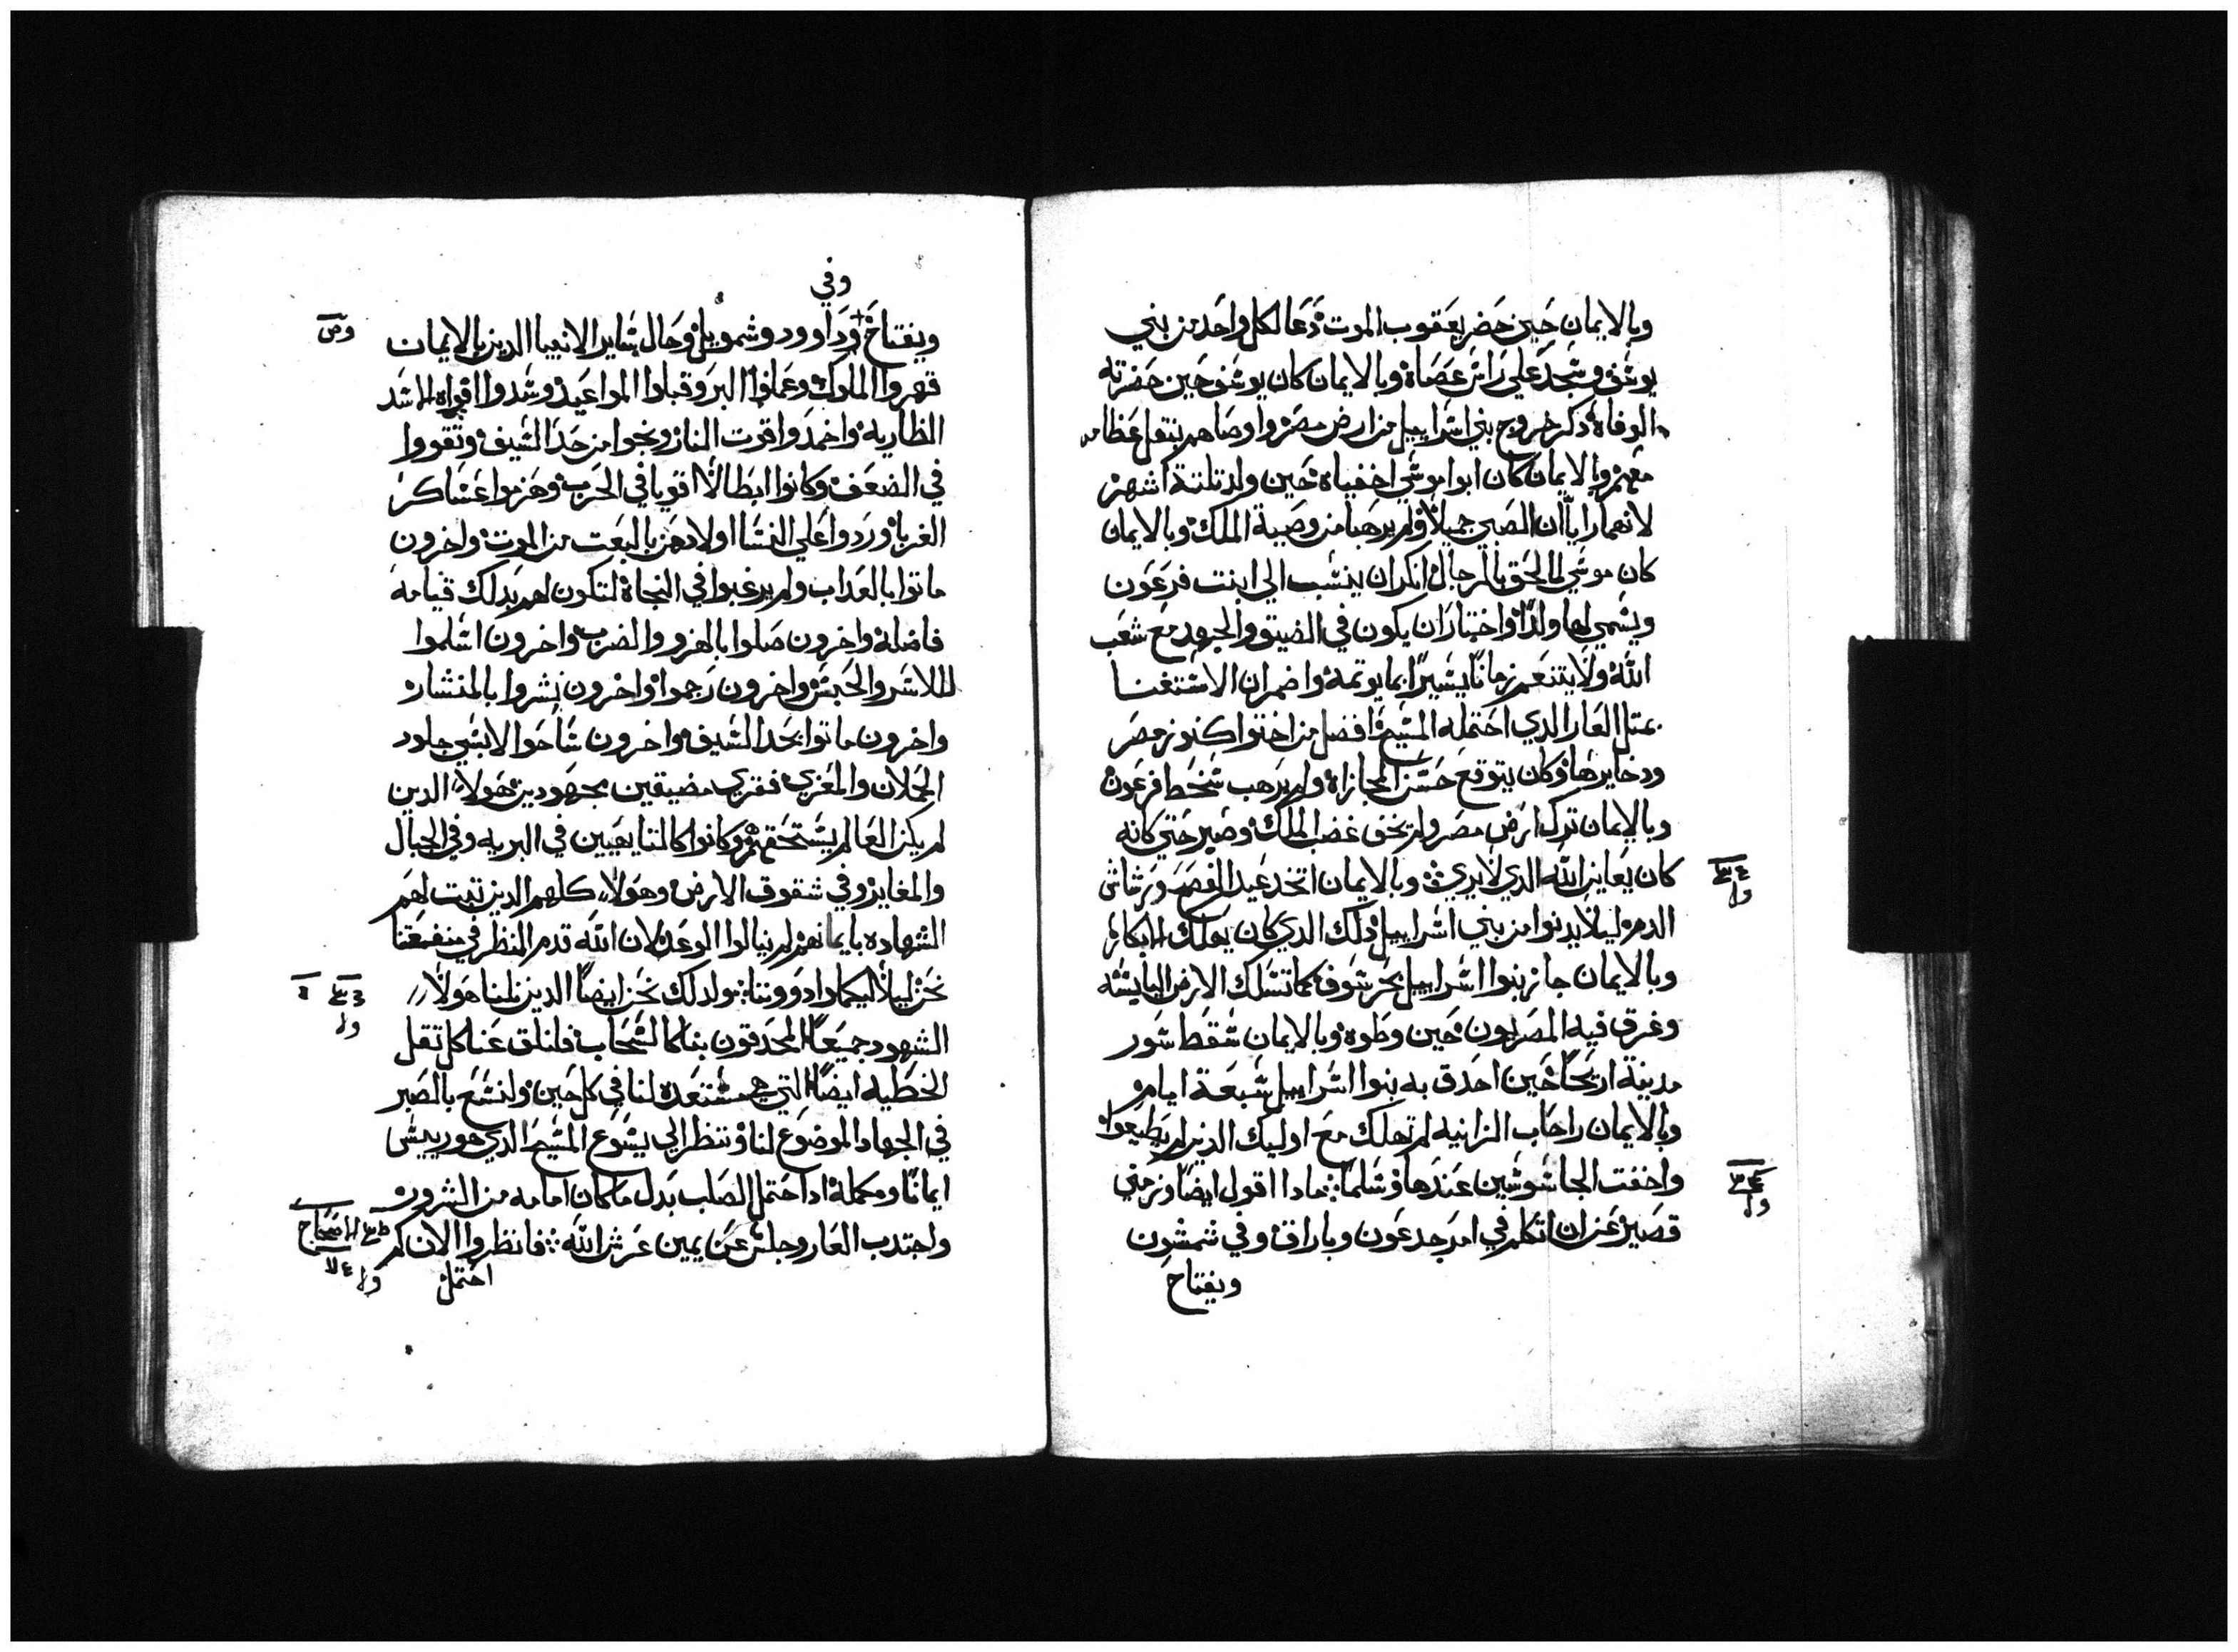 وبالايمان حين حضر يعقوب الموت دعا لكل واحد من بني
يوسف وسجد علي راس عصاه وبالايمان كان يوسف حين حضرته
الوفاة ذكر خروج بني اسراييل من ارض مصر واوصاهم بنقل عظامه
معهم وبالايمان كان ابوا موسي اخفياه حين ولد تلتة اشهر
لانهما رايا ان الصبي جميلا ولم يرهبا من وصية الملك وبالايمان
كان موسي لما لحق بالرجال انكر ان ينسب الي ابنت فرعون
ويسمي لها ولدا واختار ان يكون في الضيق والجهد مع شعب
الله ولا يتنعم زمانا يسيرا بما يوتمه واضمر ان الاستغنا
بمثل العار الذي احتمله المسيح افضل من اختوا كنوز مصر
ودخايرها وكان يتوقع حسن المجازاة ولم يرهب سخط فرعون
وبالايمان ترك ارض مصر ولم يخف غضب الملك وصبر حتي كانه
كان يعاين الله الدي لا يري وبالايمان اتخد عيد الفصح ورشاش
الدم ليلا يدنوا من بني اسراييل دلك الدي كان يهلك الابكار
وبالايمان جاز بنوا اسراييل بحر سوف كما تسلك الارض اليابسه
وغرق فيه المصريون حين وطوه وبالايمان سقط سور
مدينة اريحا حين احدق به بنوا اسراييل سبعة ايام
وبالايمان راحاب الزانيه لم تهلك مع اوليك الدين لم يطيعوا
واخفت الجاسوسين عندها وسلما مادا اقول ايضا وزمني
قصير عن ان اتكلم في امر جدعون وباراق وفي شمشون
ويفتاح
وفي
ويفتاح وداوود وشمويل وحال ساير الانبيا الدين بالايمان
قهروا الملوك وعملوا البر وقبلوا المواعيد وسدوا افواه الاسد
الظاريه واخمدوا قوت النار ونجوا من حد السيف وتقووا
في الضعف وكانوا ابطالا اقويا في الحرب وهزموا عساكر
الغربا وردوا علي النسا اولادهن بالبعت من الموت واخرون
ماتوا بالعداب ولم يرغبوا في النجاة لتكون لهم بدلك قيامه
فاضله واخرون صلوا بالهزو والضرب واخرون اسلموا
للاسر والحبس واخرون رجموا واخرون نشروا بالمنشار
واخرون ماتوا بحد السيف واخرون ساحوا لابسي جلود
الحملان والمعزي فقري مضيقين مجهودين هولا الدين
لم يكن العالم يستحقهم وكانوا كالتايهين في البريه وفي الجبال
والمغاير وفي شقوق الارض وهولا كلهم الدين تبت لهم
الشهاده بايمانهم لم ينالوا الوعد لان الله قدم النظر في منفعتنا
نحن ليلا يكملوا دوننا ولدلك نحن ايضا الدين لنا هولا
الشهود جميعا المحدقون بنا كالسحاب فلنلق عنا كل تقل
الخطيه ايضا التي هي مستعده لنا في كل حين ولنسع بالصبر
في الجهاد الموضوع لنا وننظر الي يسوع المسيح الدي هو رييس
ايماننا ومكمله ادا احتمل الصلب بدل ما كان امامه من السرور
واجتدب العار وجلس عن يمين عرش الله فانظروا الان كم
احتمل